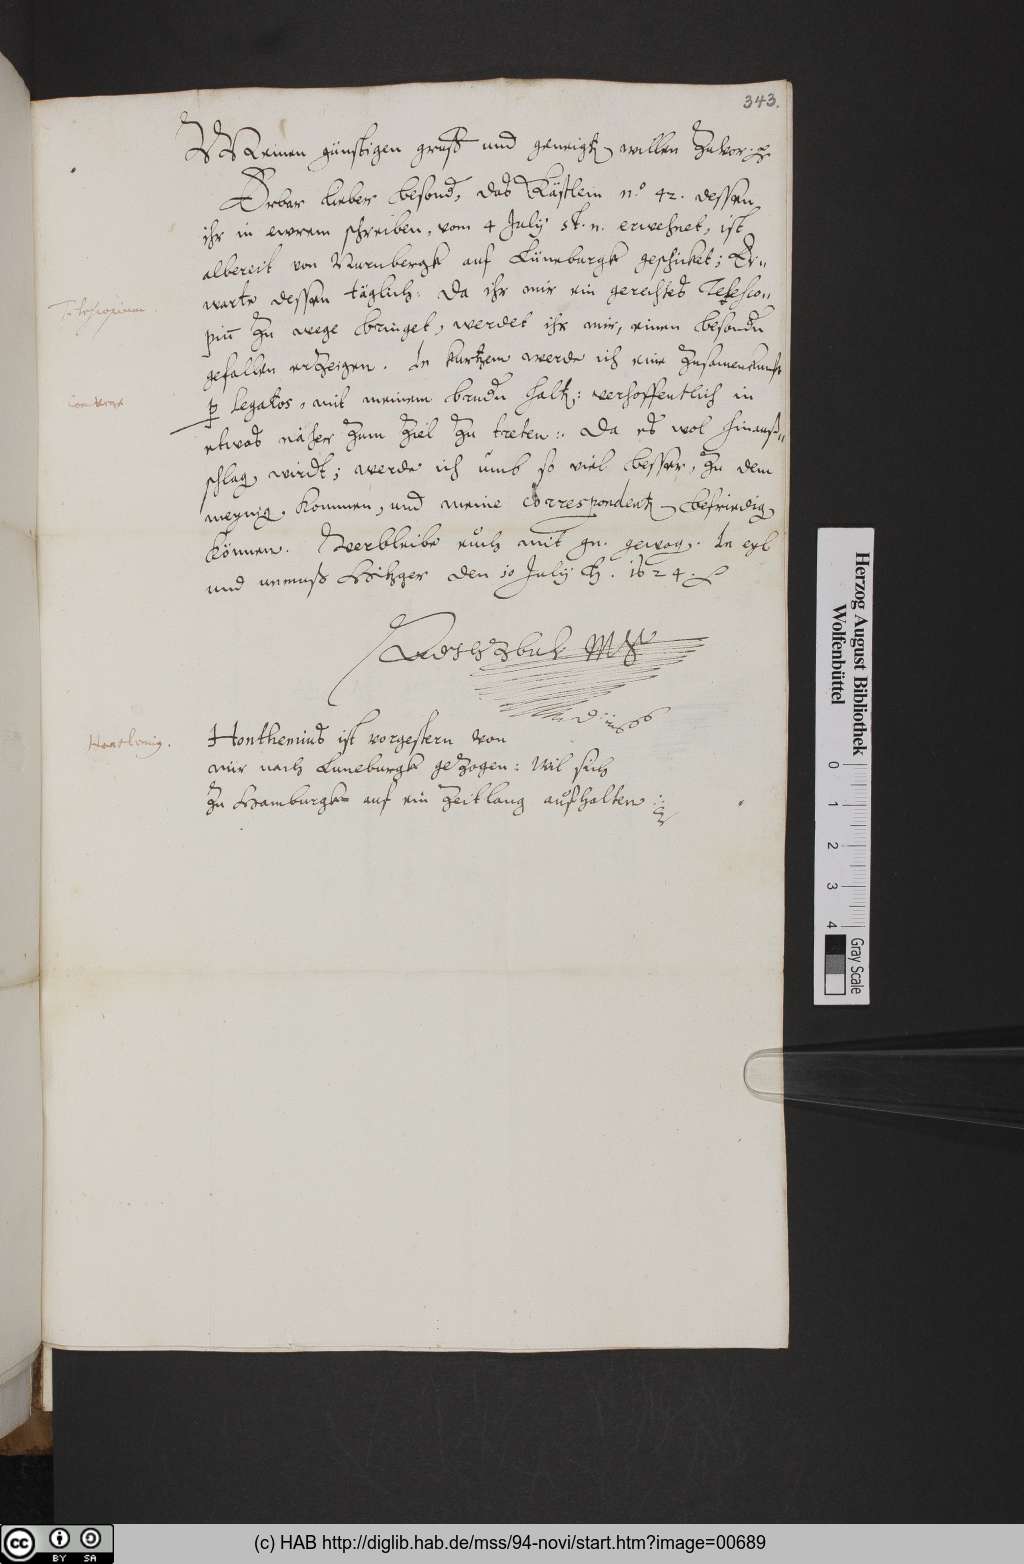 343.
Meinen günstigen gruß und geneigt willen zuvor.
Erbar lieber besond, das Kästlein n.° 42. dessen
ihr in ewrem schreiben, vom 4 July st. n. erwehnet, ist
albereit von Nurnbergk auf Lüneburgk geschicket; Er-
warte dessen täglich: Da ihr mir ein gerechtes Telescio-
piu zu wege bringet, werdet ihr mir, einen besondn
gefallen erzeigen. In kurtzem werde ich eine Zusamenkunft
p legatos, mit meinem brudn halt: verhoffentlich in
etwas näher zum Ziel zu treten: Da es wol hinauß-
schlag wirdt; werde ich umb so viel besser, zu dem
meynig kommen, und meine Correspondent befriedig
können. Verbleibe euch mit gn. gewog. In eyl
und unmuß Hitzger den 10 July 1624.
Honthemius ist vorgestern von
mir nach Luneburgk gezogen: Wil sich
zu Hamburgk auf ein zeitlang aufhalten
Herzog August Bibliothek
Wolfenbüttel
0 1 2 3 4
Gray Scale
(c) HAB http://diglib.hab.de/mss/94-novi/start.htm?image=00689
cc BY SA